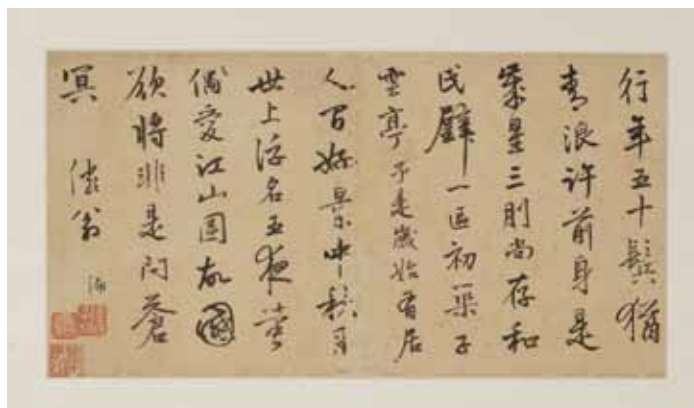 行年五十鬢猶
青浪許前身是
歲星三刖尚存和
氏璧一區初築子
雲亭予是歲始有居
好景中秋月
世上浮名五夜螢
偏愛江山圍故國
欲將非是問蒼
冥 翁